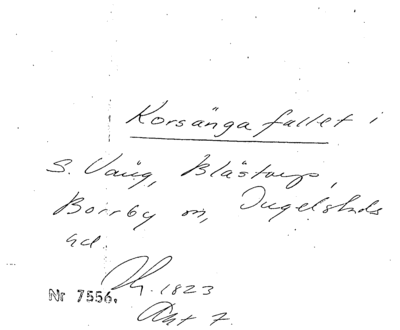 Korsänga fallet i
S. Vång, Blästorp,
Borrby sn, Ingelstads
hd.
1823
Nr 7556. Akt 7.